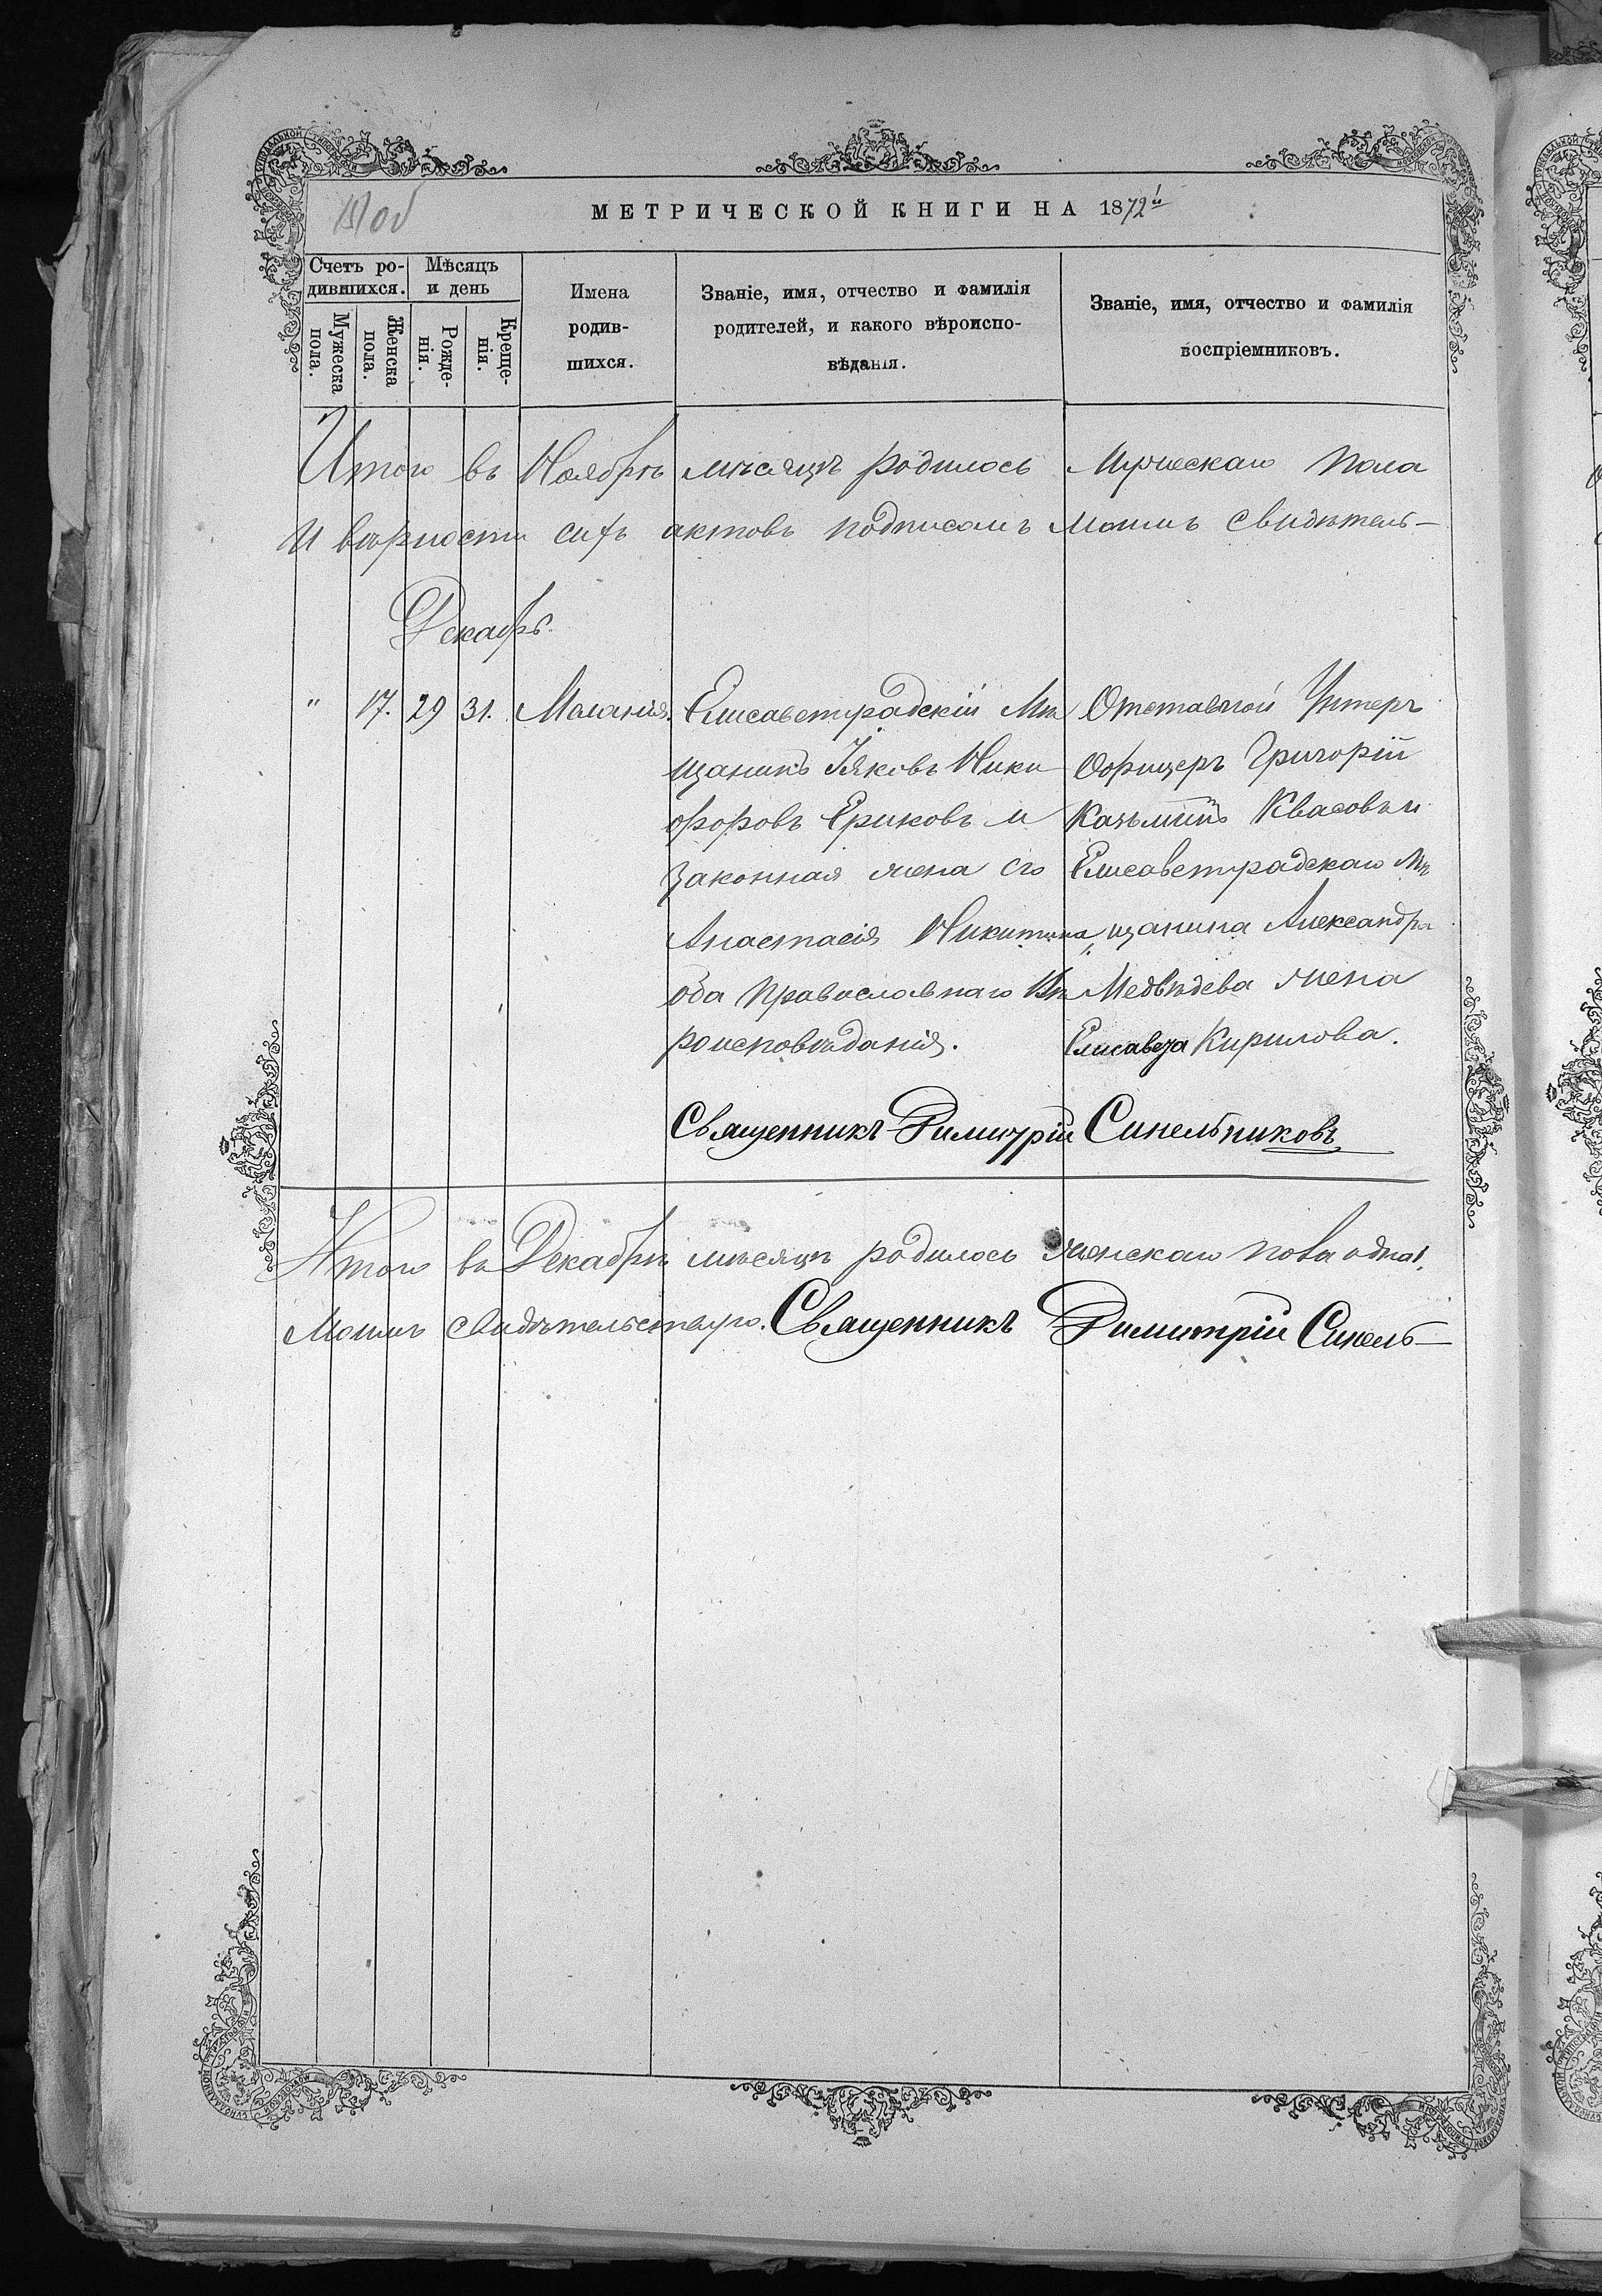 МЕТРИЧЕСКОЙ КНИГИ НА 1872й
Счетъ ро-
дившихся.
Мѣсяцъ
и день
Мужеска
пола.
Женска
пола.
Рожде-
нія.
Креще-
нія.
Имена
родив-
шихся.
Званіе, имя, отчество и фамилія
родителей, и какого вѣроиспо-
вѣданія.
Званіе, имя, отчество и фамилія
воспріемниковъ.
Итого въ Ноябрѣ мѣсяцѣ родилось Мужескаго пола
И вѣрности сихъ актовъ подписомъ Моимъ свидѣтель-
Декабрь.
" 17. 29 31. Меланія.
Елисаветградскій Мѣ
щанинъ Іяковъ Ники
форовъ Ериковъ и
законная жена его
Анастасія Никитина,
оба Православнаго Вѣ
роисповѣданія.
Отставной Унтеръ
Офицеръ Григорій
Казьминъ Квасовъ и
Елисаветградскаго Мѣ
щанина Александра
Медвѣдева жена
Елисавета Кирилова.
Священникъ Димитрій Синельниковъ
Итого въ Декабрѣ мѣсяцѣ родилось женскаго пола одна 1.
Моимъ свидѣтельствую. Священникъ Димитрій Синель-